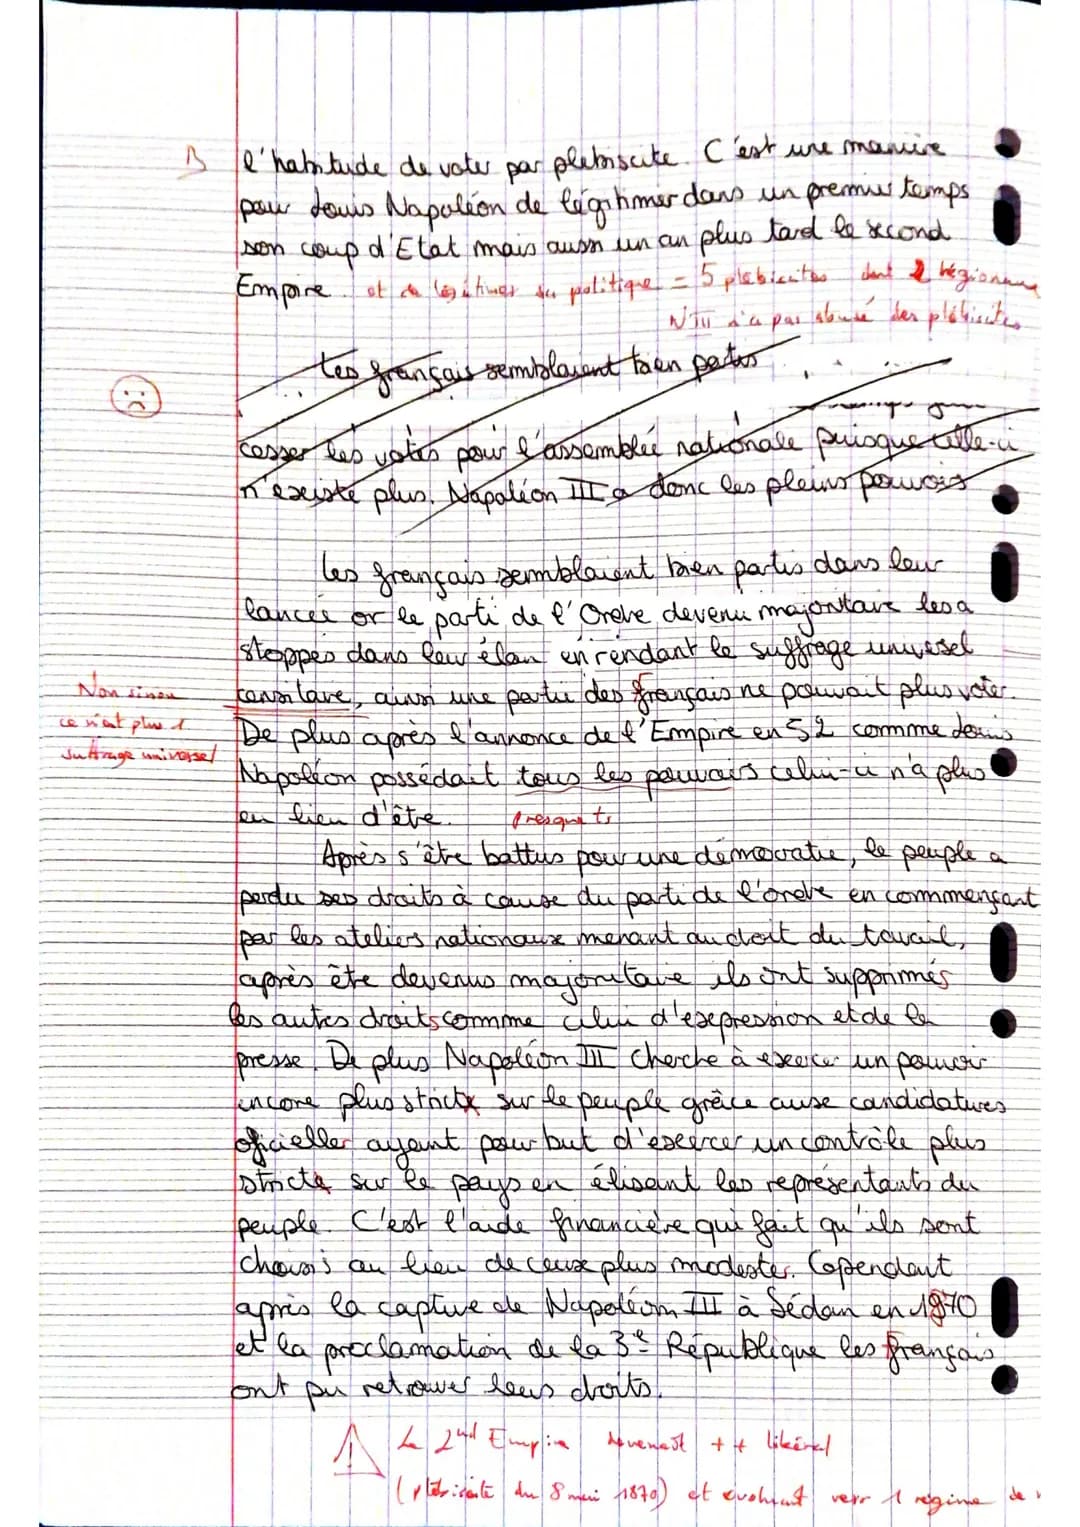 B l'habitude de voter par plebiscite. C'est une manière
pour Louis Napoléon de légitimer dans un premier temps
son coup d'Etat mais aussi un an plus tard le second
Empire. et de légitimer sa politique = 5 plebicites dont 2
NIII n'a pas abusé des plébiscites
Les français semblaient bien partis
casser les votes pour l'assemblée nationale puisque celle-ci
n'existe plus. Napoléon III a donc les pleins pouvoirs
Les français semblaient bien partis dans leur
lancée or le parti de l'Ordre devenu majoritaire les a
stoppés dans leur élan en rendant le suffrage universel
Non sinon censitaire, ainsi une partie des français ne pouvait plus voter.
ce n'est plus 1 De plus après l'annonce de l'Empire en 52 comme Louis
suffrage universel Napoléon possédait tous les pouvoirs celui-ci n'a plus
eu lieu d'être. presque ts
Après s'être battus pour une démocratie, le peuple a
perdu ses droits à cause du parti de l'ordre en commençant
par les ateliers nationaux menant au droit du travail,
après être devenus majoritaire ils ont supprimés
les autres droits comme celui d'expression et de la
presse. De plus Napoléon III cherche à exercer un pouvoir
encore plus stricte sur le peuple grâce aux candidatures
oficielles ayant pour but d'exercer un contrôle plus
stricte sur le pays en élisant les représentants du
peuple. C'est l'aide financière qui fait qu'ils sont
choisis au lieu de ceux plus modestes. Cependant
après la capture de Napoléon III à Sédan en 1870
et la proclamation de la 3e République les français
ont pu retrouver leurs droits.
! Le 2nd Empire devenait ++ libéral
(plébiscite du 8 mai 1870) et évoluait vers 1 régime de